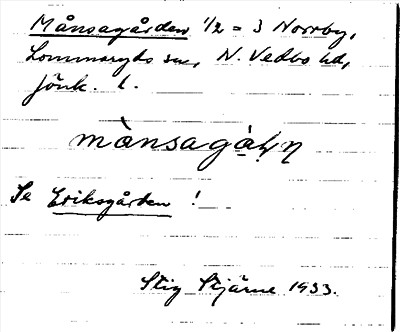 Månsagården 1/2 = 3 Norrby,
Lommaryds sn, N. Vedbo hd,
Jönk. l.
mȧnsagȧḷn̥
Se Eriksgården !
Stig Stjärne 1933.